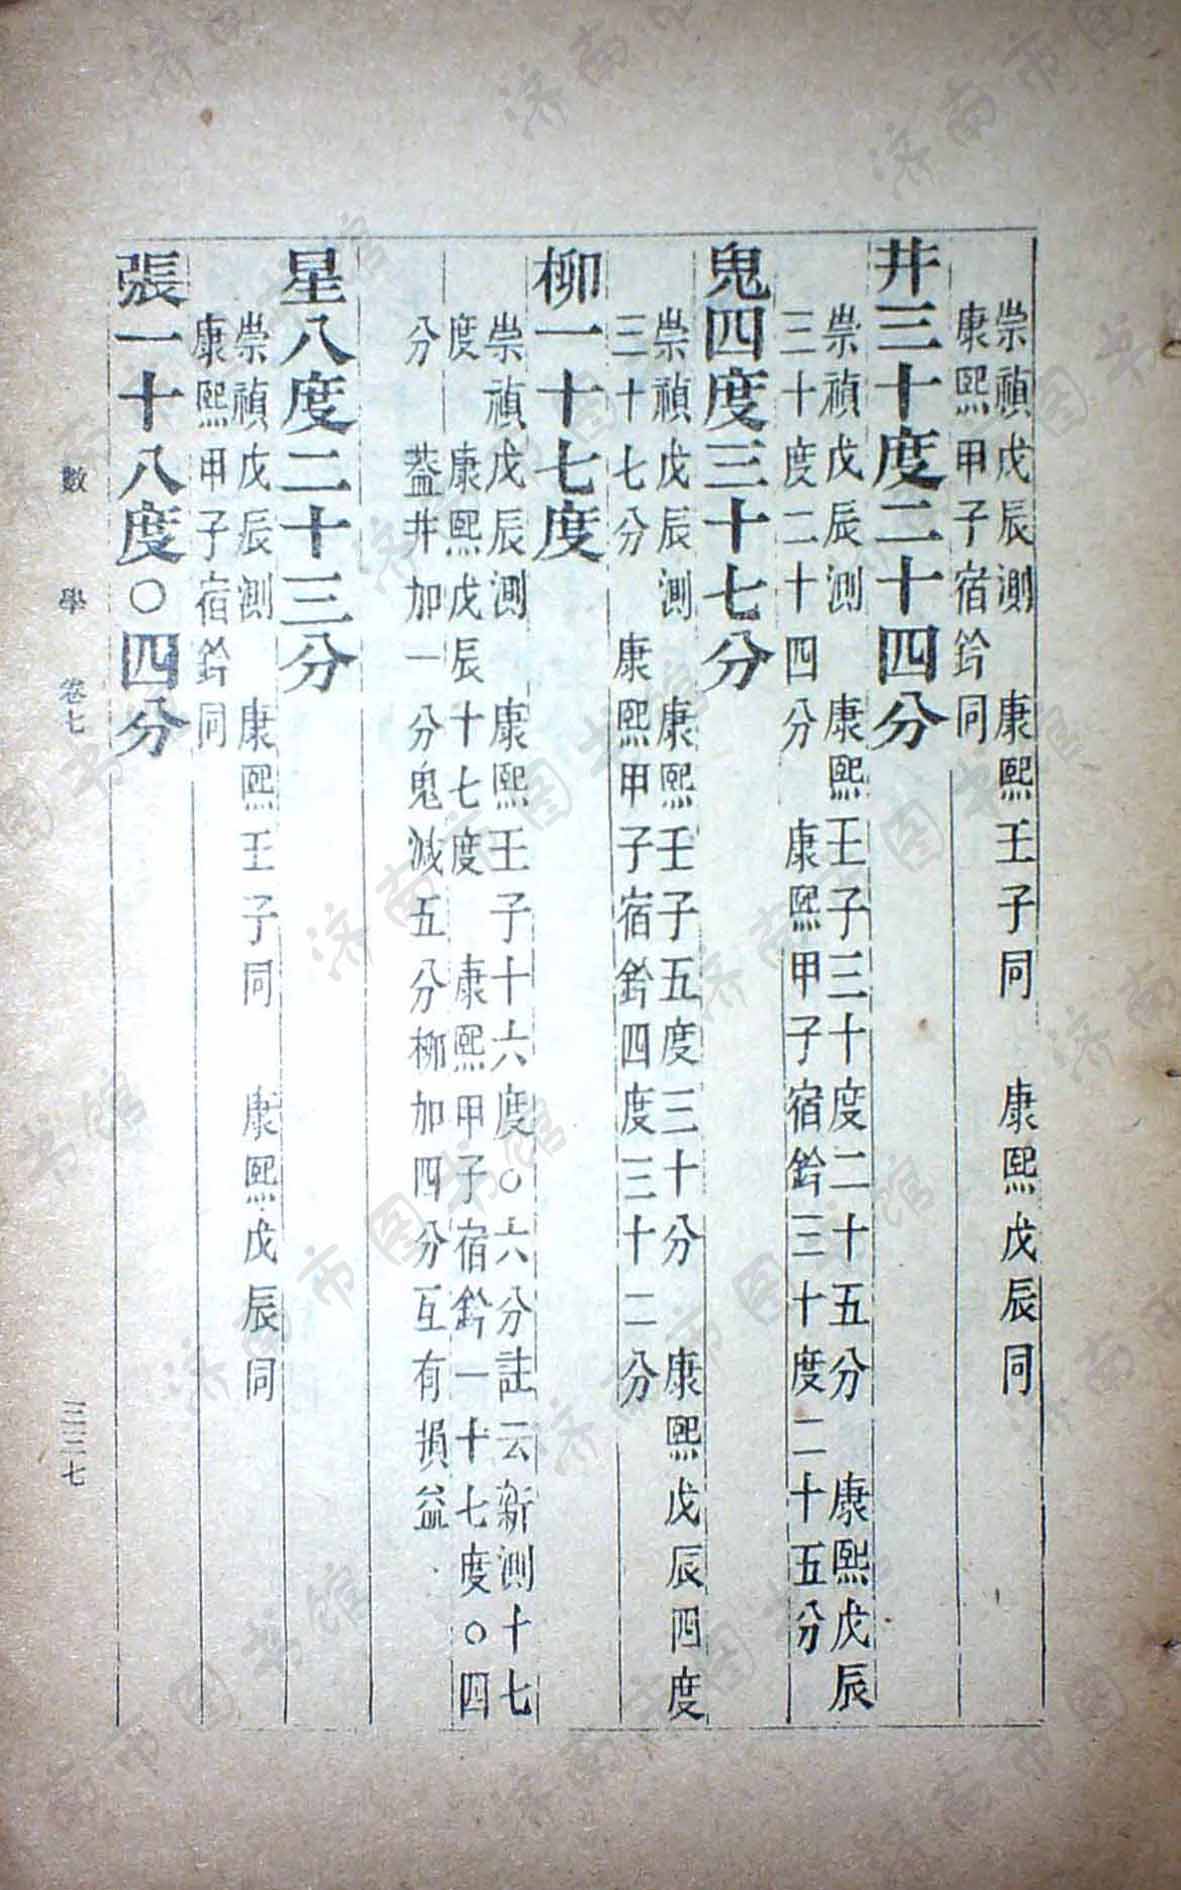 崇禎戊辰測　康熙王子同　康熙戊辰同
康熙甲子宿鈐同
井三十度二十四分
崇禎戊辰測　康熙王子三十度二十五分　康熙戊辰
三十度二十四分　康熙甲子宿鈐三十度二十五分
鬼四度三十七分
崇禎戊辰測　康熙壬子五度三十分　康熙戊辰四度
三十七分　康熙甲子宿鈐四度三十二分
柳一十七度
崇禎戊辰測　康熙王子十六度〇六分註云新測十七
度　康熙戊辰十七度　康熙甲子宿鈐一十七度〇四
分　葢井加一分鬼減五分柳加四分互有損益
星八度二十三分
崇禎戊辰測　康熙王子同　康熙戊辰同
康熙甲子宿鈐同
張一十八度〇四分
數學　卷七　三二七
济南市图书馆